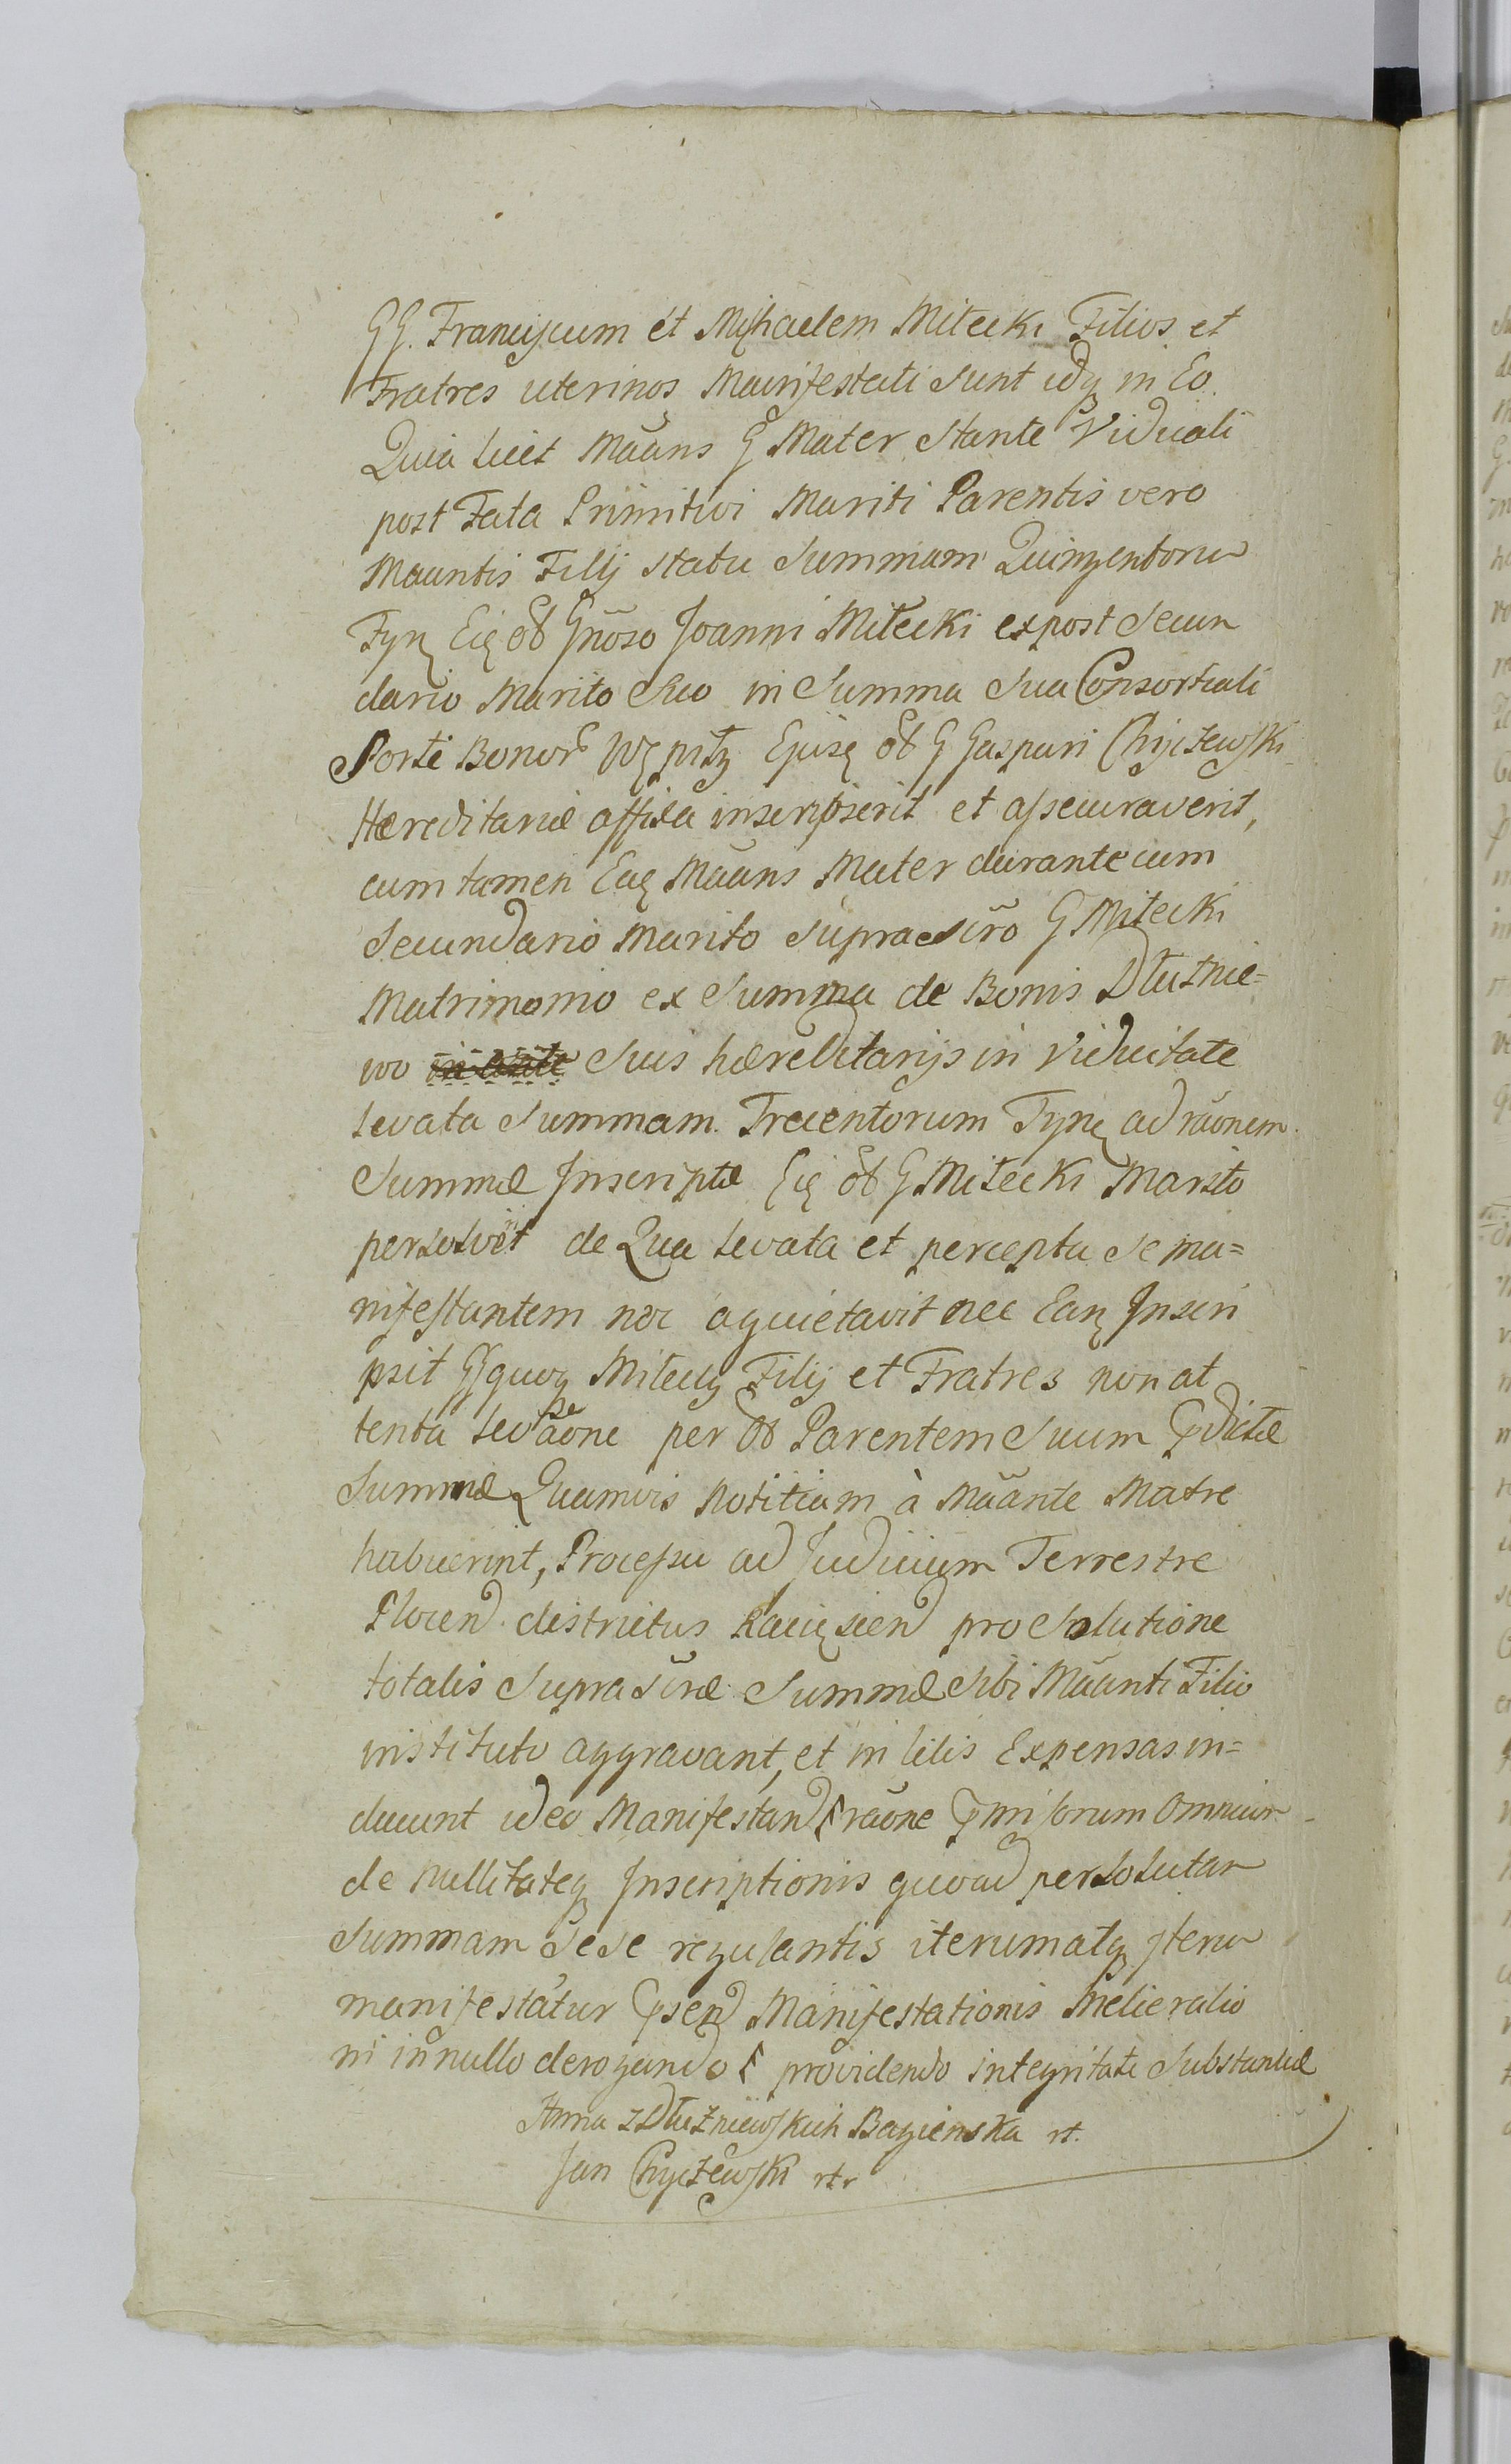 GG. Franciscum et Michaelem Miłecki Filios et
Fratres uterinos Manifestati sunt idq in Eo.
Quia licet Mãans G Mater stante Viduali
post Fata Primitivi Mariti Parentis vero
Maantis Filij statu Summam Quingentoru
Fyn Eiȩ Gñoso Joanni Miłecki expost Secun
dario Marito Suo in Summa Sua Consortiali
Sorte Bonor G Gaspari Chyczewski
Hæreditariæ affixa inscripserit et assecuraverit,
cum tamen Eaȩ Mãans Mater durante cum
Secundario Marito supra scro G Miłecki
Matrimonio ex Summa de Bonis Dłużnie=
wo Suis hæreditarijs in Viduitate
levata Summam Trecentorum Fyn ad rãonem
Summæ Inscriptæ Eiȩ G Miłecki Marito
persolvit de Qua levata et percepta se ma=
nifestantem nec aquietavit nec Ean Inscri
psit GGquoq Miłecy Filij et Fratres non at
tenta levãone per Parentem Suum dictæ
Summæ Quamvis Notitiam à Mãante Matre
habuerint, Processu ad Judicium Terrestre
Plocen districtus Raciąscien pro Solutione
totalis Supra scræ Summæ Sibi Mãanti Filio
instituto aggravant, et in litis Expensas in=
ducunt ideo Manifestan rãone pmissorum Omniu
de nullitateq Inscriptionis quoad persolutam
Summam Sese regulantis iterumatq iteru
manifestatur psen Manifestationis Meliera\lio
ni in nullo derogando & providendo integritati Substantiæ
Anna z Dłużniewskich Bagienska rt.
Jan Chyczewski rt